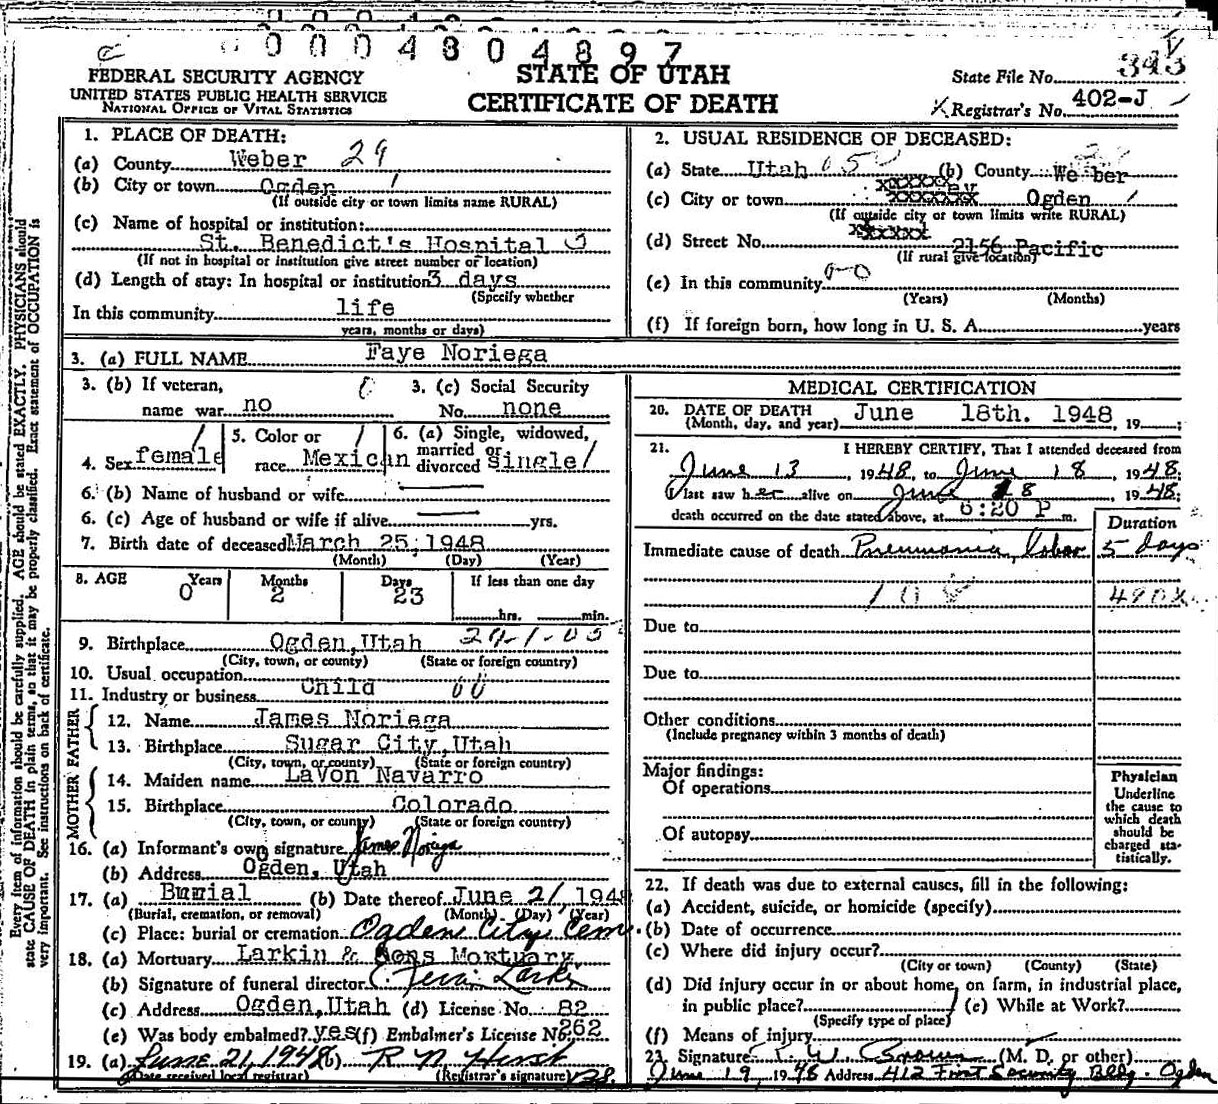 0 0 0 4 8 0 4 8 9 7
FEDERAL SECURITY AGENCY
UNITED STATES PUBLIC HEALTH SERVICE
NATIONAL OFFICE OF VITAL STATISTICS
STATE OF UTAH
CERTIFICATE OF DEATH
State File No. 343
Registrar's No. 402-J
Every item of information should be carefully supplied. AGE should be stated EXACTLY. PHYSICIANS should
state CAUSE OF DEATH in plain terms, so that it may be properly classified. Exact statement of OCCUPATION is
very important. See instructions on back of certificate.
1. PLACE OF DEATH:
(a) County Weber 29
(b) City or town Ogden 1
(If outside city or town limits name RURAL)
(c) Name of hospital or institution:
St. Benedict's Hospital
(If not in hospital or institution give street number or location)
(d) Length of stay: In hospital or institution 3 days
(Specify whether
In this community life
years, months or days)
2. USUAL RESIDENCE OF DECEASED:
(a) State Utah (b) County Weber
(c) City or town Ogden
(If outside city or town limits write RURAL)
(d) Street No. 2156 Pacific
(If rural give location)
(e) In this community
(Years) (Months)
(f) If foreign born, how long in U. S. A. years
3. (a) FULL NAME Faye Noriega
3. (b) If veteran, 3. (c) Social Security
name war no No. none
4. Sex female 5. Color or race Mexican 6. (a) Single, widowed, married or divorced single
6. (b) Name of husband or wife
6. (c) Age of husband or wife if alive yrs.
7. Birth date of deceased March 25, 1948
(Month) (Day) (Year)
8. AGE Years Months Days If less than one day
0 2 23 hrs. min.
9. Birthplace Ogden, Utah
(City, town, or county) (State or foreign country)
10. Usual occupation
11. Industry or business Child
FATHER
12. Name James Noriega
13. Birthplace Sugar City, Utah
(City, town, or county) (State or foreign country)
MOTHER
14. Maiden name LaVon Navarro
15. Birthplace Colorado
(City, town, or county) (State or foreign country)
16. (a) Informant's own signature James Noriega
(b) Address Ogden, Utah
17. (a) Burial (b) Date thereof June 21, 1948
(Burial, cremation, or removal) (Month) (Day) (Year)
(c) Place: burial or cremation Ogden City Cem.
18. (a) Mortuary Larkin & Sons Mortuary
(b) Signature of funeral director
(c) Address Ogden, Utah (d) License No. 82
(e) Was body embalmed? yes (f) Embalmer's License No. 262
19. (a) June 21, 1948 (b)
(Date received local registrar) (Registrar's signature)
MEDICAL CERTIFICATION
20. DATE OF DEATH June 18th. 1948, 19 ;
(Month, day, and year)
21. I HEREBY CERTIFY, That I attended deceased from
June 13, 1948, to June 18, 1948;
I last saw her alive on June 18, 1948;
death occurred on the date stated above, at 6:20 P m.
Duration
Immediate cause of death Pneumonia, lobar 5 days
490X
Due to
Due to
Other conditions
(Include pregnancy within 3 months of death)
Major findings:
Of operations
Of autopsy
Physician
Underline
the cause to
which death
should be
charged sta-
tistically.
22. If death was due to external causes, fill in the following:
(a) Accident, suicide, or homicide (specify)
(b) Date of occurrence
(c) Where did injury occur?
(City or town) (County) (State)
(d) Did injury occur in or about home, on farm, in industrial place,
in public place? (e) While at Work?
(Specify type of place)
(f) Means of injury
23. Signature W. Brown (M. D. or other)
June 19, 1948 Address 412 First Security Bldg. Ogden